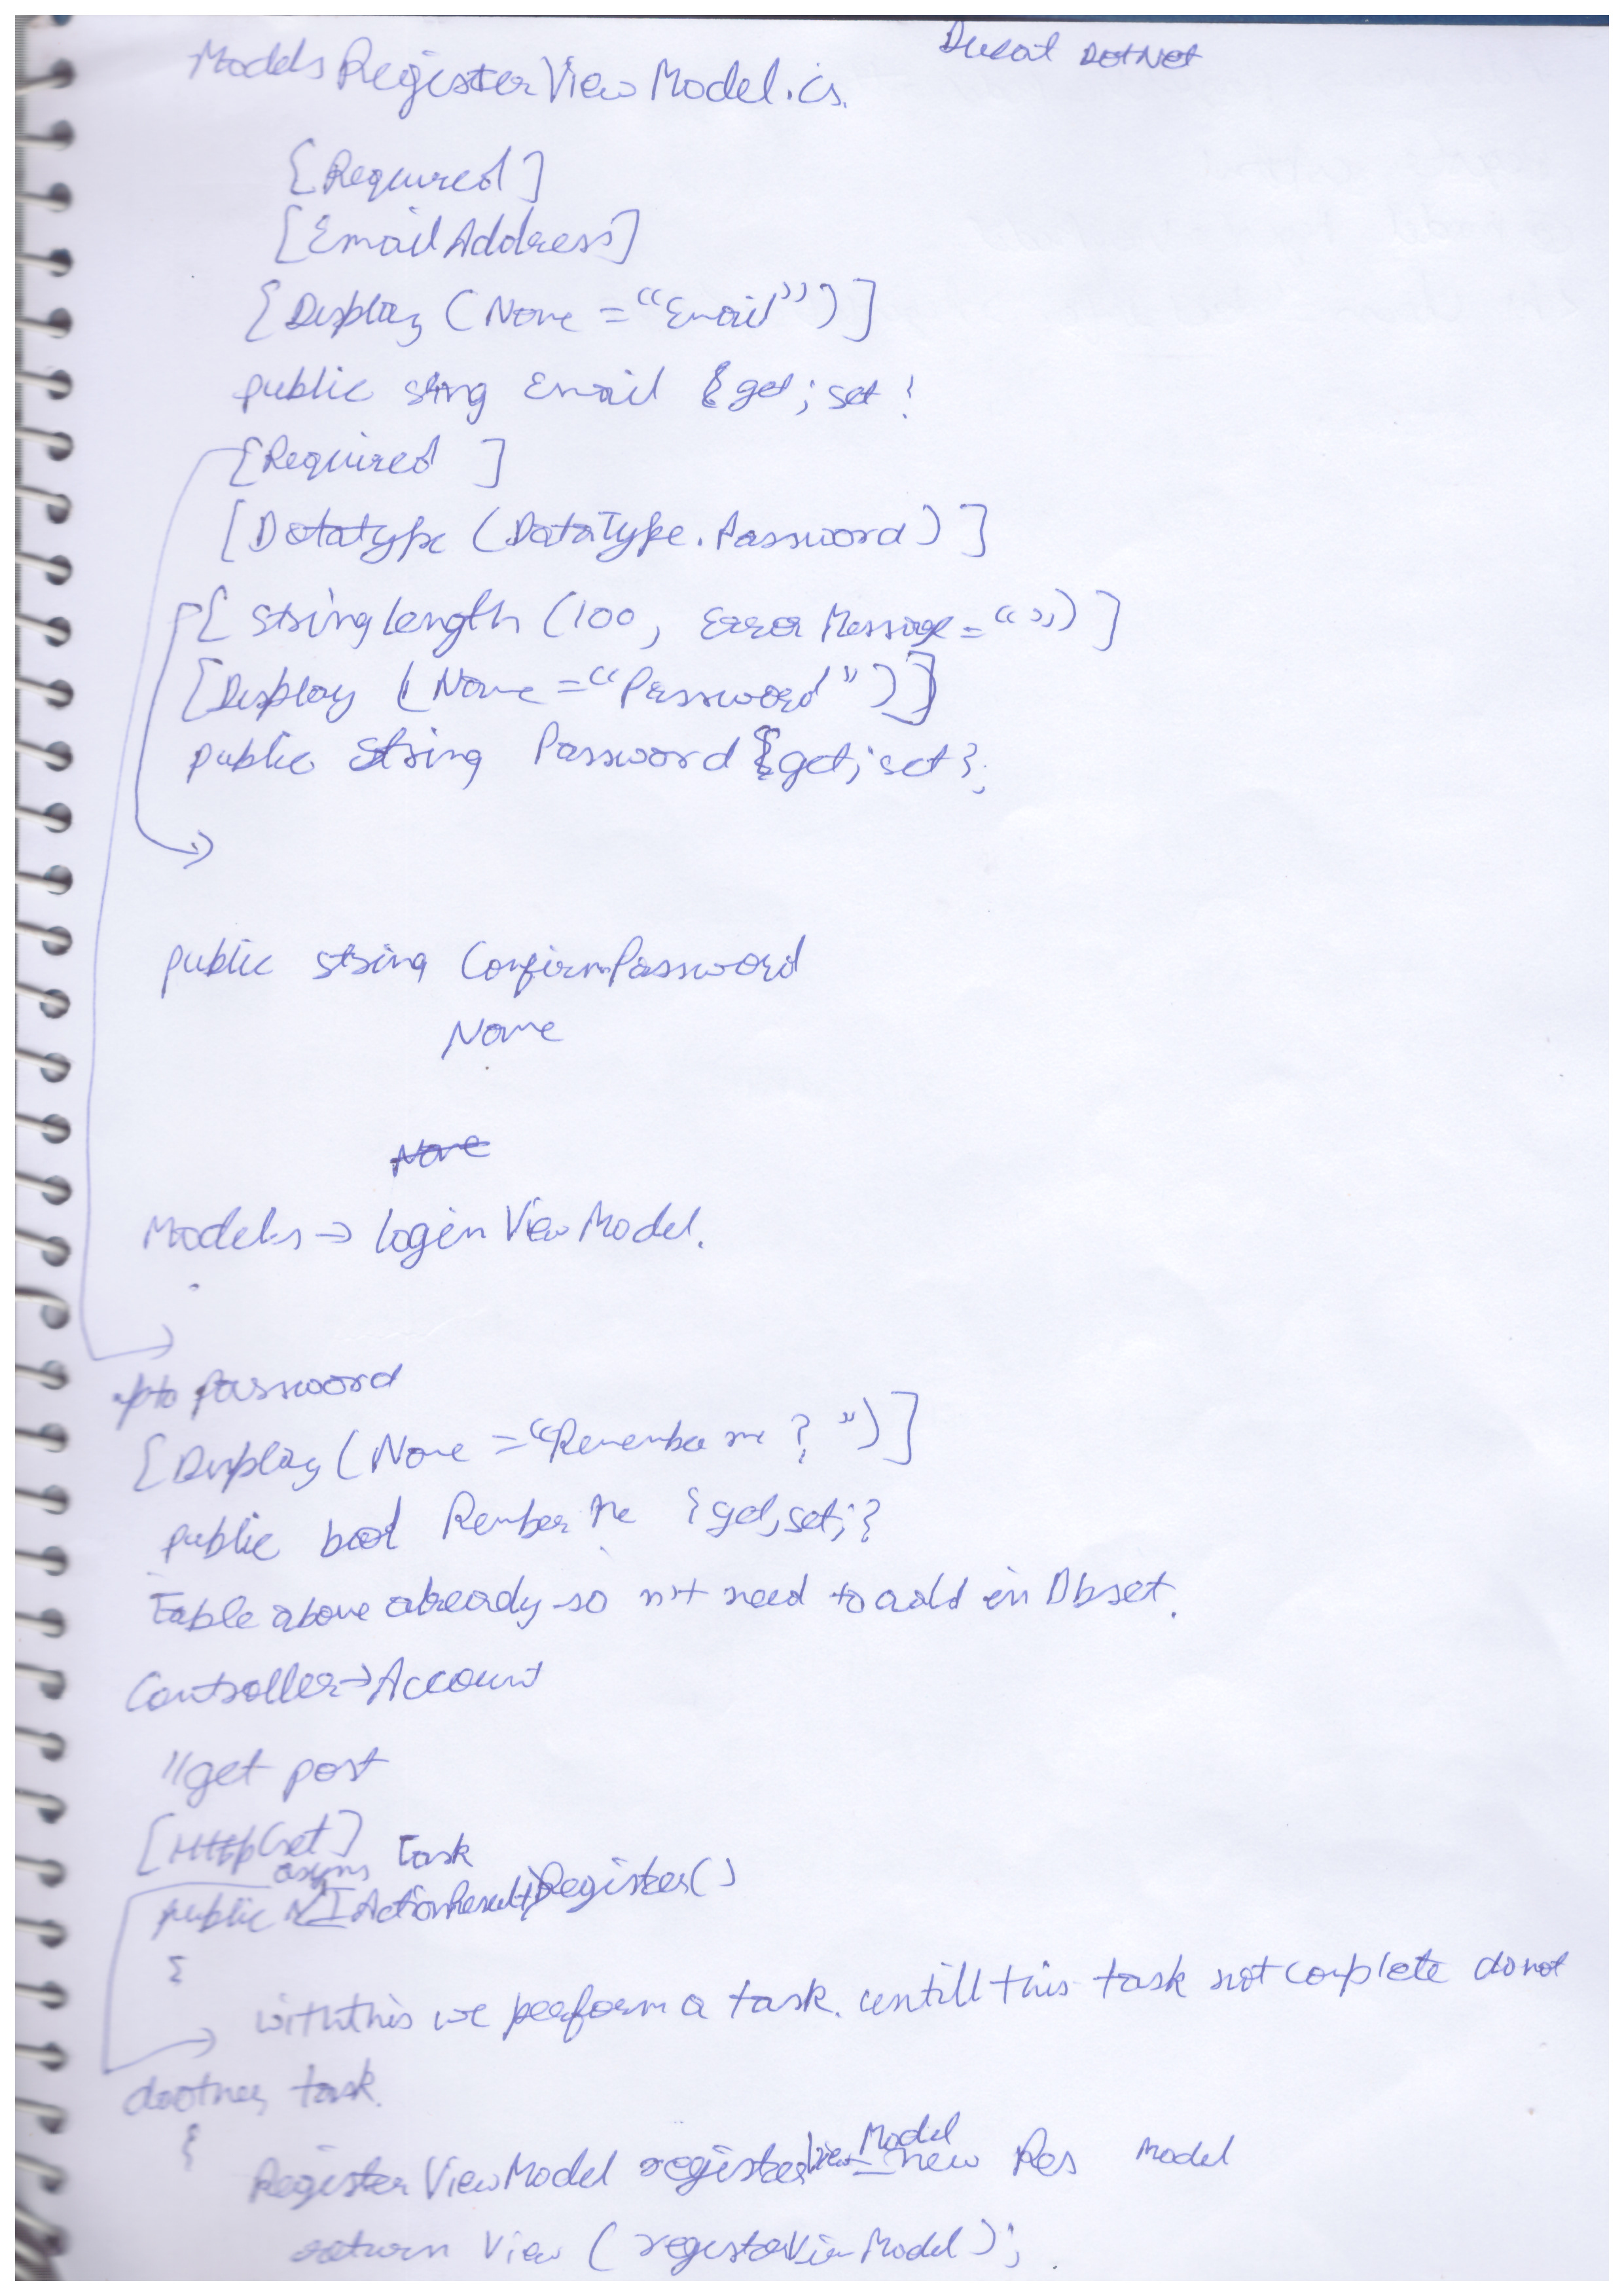 Ducat DotNet
Models RegisterViewModel.cs.
[Required]
[EmailAddress]
[Display (Name = "Email")]
public sting Email {get; set }
[Required ]
[Datatype (DataType.Password)]
[ stringlength (100, Error Message = " ")]
[Display (Name = "Password")]
public string Password {get; set };
public string ConfirmPassword
Name
Name
Models → login View Model.
upto password
[Display (Name = "Remember me ? ")]
public bool Rember Me {get, set; }
Table above already so not need to add in Dbset.
Controller → Account
//get post
[HttpGet]
async Task
public IActionResult Register()
{
with this we perform a task. untill this task not complete do not
do other task.
{
Register View Model registerView Model = new Res Model
return View ( registerViewModel );